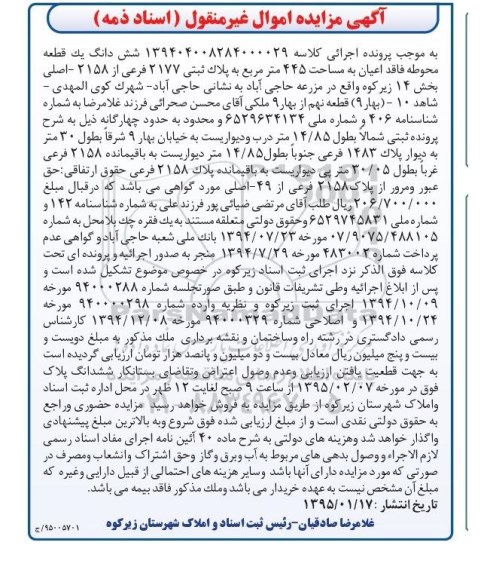 آگهی مزایده اموال غیرمنقول (اسناد ذمه)
به موجب پرونده اجرائی کلاسه ۱۳۹۴۰۴۰۰۸۲۸۴۰۰۰۰۲۹ شش دانگ یک قطعه
محوطه فاقد اعیان به مساحت ۴۴۵ متر مربع به پلاک ثبتی ۲۱۷۷ فرعی از ۲۱۵۸ -اصلی
بخش ۱۴ زیرکوه واقع در مزرعه حاجی آباد به نشانی حاجی آباد- شهرک کوی المهدی -
شاهد ۱۰ - (بهار۹) قطعه نهم از بهار۹ ملکی آقای محسن صحرائی فرزند غلامرضا به شماره
شناسنامه ۴۰۶ و شماره ملی ۶۵۲۹۶۳۴۱۳۴ و محدود به حدود چهارگانه ذیل به شرح
پرونده ثبتی شمالا بطول ۱۴/۸۵ متر درب ودیواریست به خیابان بهار ۹ شرقاً بطول ۳۰ متر
به دیوار پلاک ۱۴۸۳ فرعی جنوباً بطول۱۴/۸۵ متر دیواریست به باقیمانده ۲۱۵۸ فرعی
غرباً بطول ۳۰/۰۵ متر پی دیواریست به باقیمانده پلاک ۲۱۵۸ فرعی حقوق ارتفاقی:حق
عبور ومرور از پلاک۲۱۵۸ فرعی از ۴۹-اصلی مورد گواهی می باشد که درقبال مبلغ
۲۰۶/۷۰۰/۰۰۰ ریال طلب آقای مرتضی ضیائی پور فرزند علی به شماره شناسنامه ۱۴۲ و
شماره ملی ۶۵۲۹۷۴۵۸۳۱ وحقوق دولتی متعلقه مستند به یک فقره چک بلامحل به شماره
۰۷/۹۰۷۵/۴۸۸۱۰۵ مورخه ۱۳۹۴/۰۷/۲۳ بانک ملی شعبه حاجی آبادو گواهی عدم
پرداخت شماره ۴۸۳۰۰۲ مورخه ۱۳۹۴/۷/۲۹ منجر به صدور اجرائیه و پرونده ای تحت
کلاسه فوق الذکر نزد اجرای ثبت اسناد زیرکوه در خصوص موضوع تشکیل شده است و
پس از ابلاغ اجرائیه وطی تشریفات قانون و طبق صورتجلسه شماره ۹۴۰۰۰۲۸۸ مورخه
۱۳۹۴/۱۰/۰۹ اجرای ثبت زیرکوه و نظریه وارده شماره ۹۴۰۰۰۰۲۹۸ مورخه
۱۳۹۴/۱۰/۲۴ و اصلاحی شماره ۹۴۰۰۰۳۲۹ مورخه ۱۳۹۴/۱۲/۰۸ کارشناس
رسمی دادگستری در رشته راه وساختمان و نقشه برداری ملك مذکور به مبلغ دویست و
بیست و پنج میلیون ریال معادل بیست و دو میلیون و پانصد هزار تومان ارزیابی گردیده است
به جهت قطعیت یافتن ارزیابی وعدم وصول اعتراض وتقاضای بستانکار ششدانگ پلاک
فوق در مورخه ۱۳۹۵/۰۲/۰۷ از ساعت ۹ صبح لغایت ۱۲ ظهر در محل اداره ثبت اسناد
واملاک شهرستان زیرکوه از طریق مزایده به فروش خواهد رسید مزایده حضوری وراجع
به حقوق دولتی نقدی است و از مبلغ ارزیابی شده فوق شروع وبه بالاترین مبلغ پیشنهادی
واگذار خواهد شد وهزینه های دولتی به شرح ماده ۴۰ آئین نامه اجرای مفاد اسناد رسمی
لازم الاجراء و وصول بدهی های مربوط به آب وبرق و گاز وحق اشتراک وانشعاب ومصرف در
صورتی که مورد مزایده دارای آنها باشد وسایر هزینه های احتمالی از قبیل دارایی وغیره که
مبلغ آن مشخص نیست به عهده خریدار می باشد وملك مذکور فاقد بیمه می باشد.
تاریخ انتشار :۱۳۹۵/۰۱/۱۷
غلامرضا صادقیان-رئیس ثبت اسناد و املاک شهرستان زیرکوه
۹۵۰۰۵۷۰۱/ج